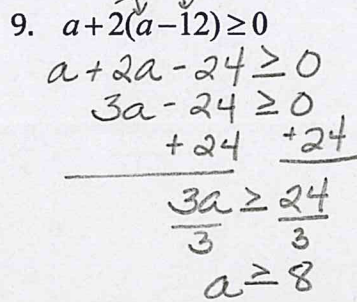 9. a+2(a−12)≥0
a + 2a - 24 ≥ 0
3a - 24 ≥ 0
+ 24 +24
3a ≥ 24
3 3
a ≥ 8